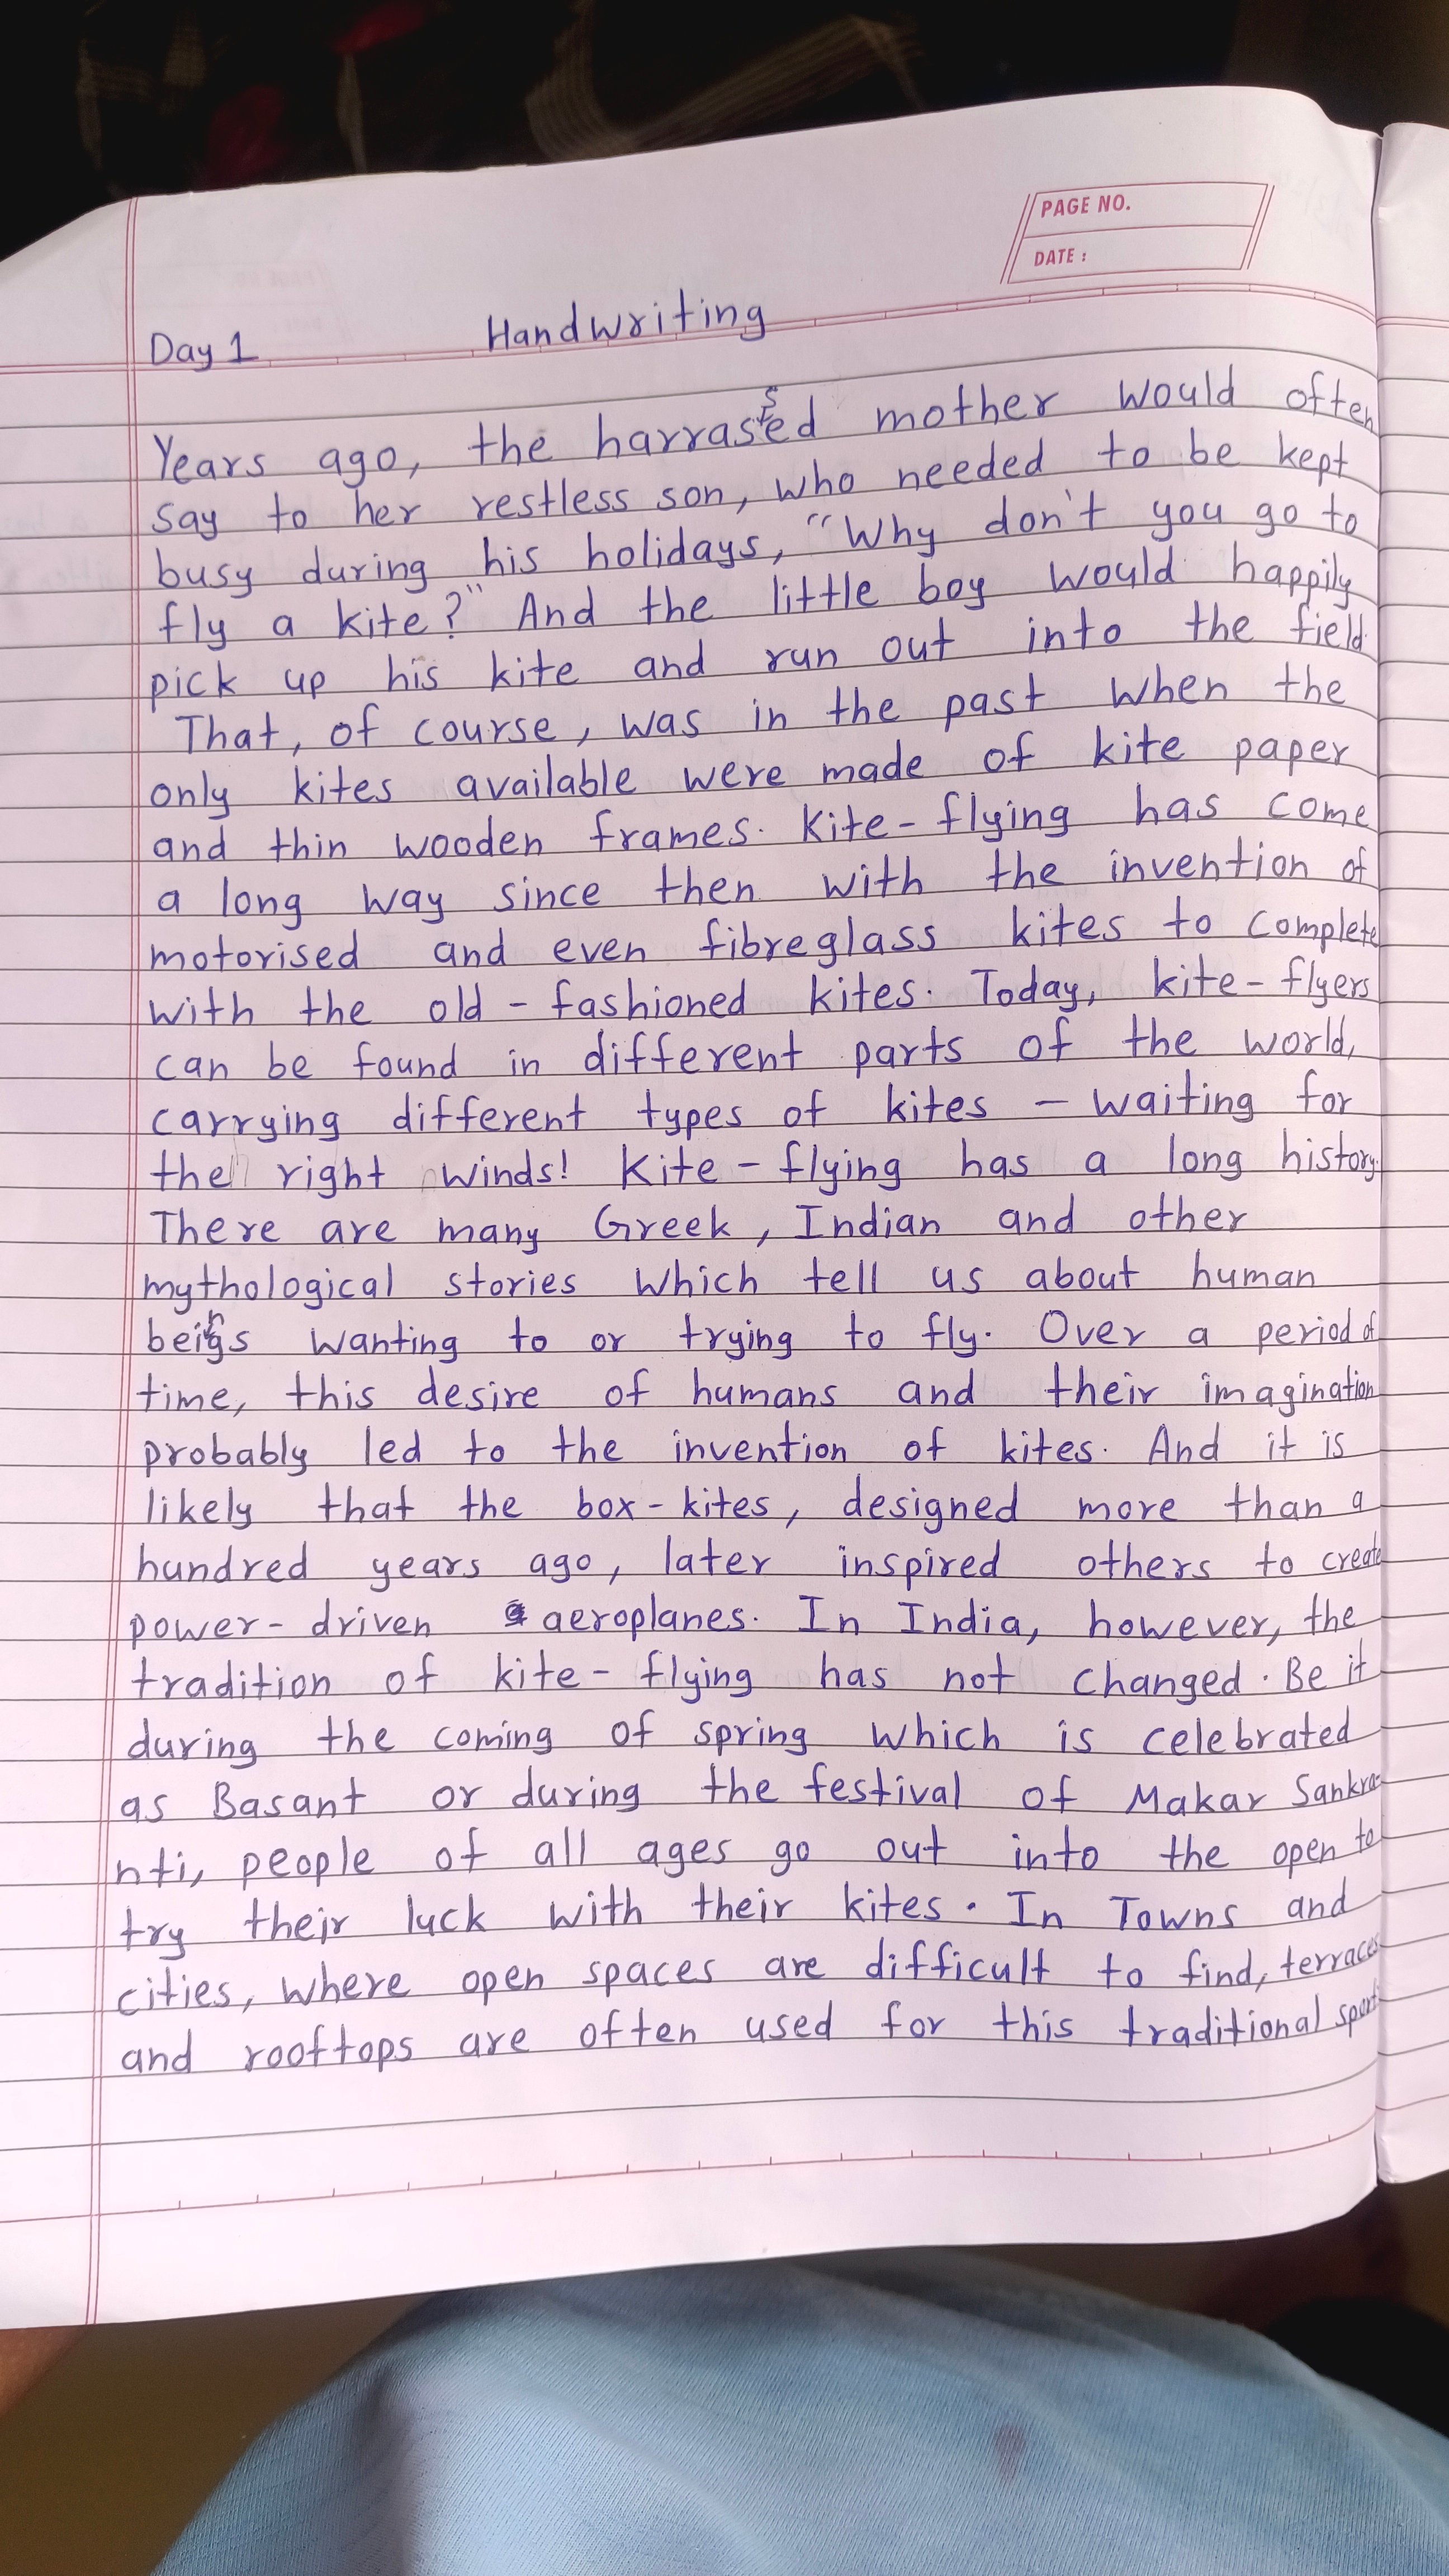 PAGE NO.
DATE :
Day 1 Handwriting
Years ago, the harrassed mother would often
say to her restless son, who needed to be kept
busy during his holidays, "Why don't you go to
fly a kite?" And the little boy would happily
pick up his kite and run out into the field.
That, of course, was in the past when the
only kites available were made of kite paper
and thin wooden frames. Kite-flying has come
a long way since then with the invention of
motorised and even fibreglass kites to complete
with the old-fashioned kites. Today, kite-flyers
can be found in different parts of the world,
carrying different types of kites – waiting for
the right winds! Kite-flying has a long history.
There are many Greek, Indian and other
mythological stories which tell us about human
beings wanting to or trying to fly. Over a period of
time, this desire of humans and their imagination
probably led to the invention of kites. And it is
likely that the box-kites, designed more than a
hundred years ago, later inspired others to create
power-driven aeroplanes. In India, however, the
tradition of kite-flying has not changed. Be it
during the coming of spring which is celebrated
as Basant or during the festival of Makar Sankra-
nti, people of all ages go out into the open to
try their luck with their kites. In Towns and
cities, where open spaces are difficult to find, terraces
and rooftops are often used for this traditional sport.